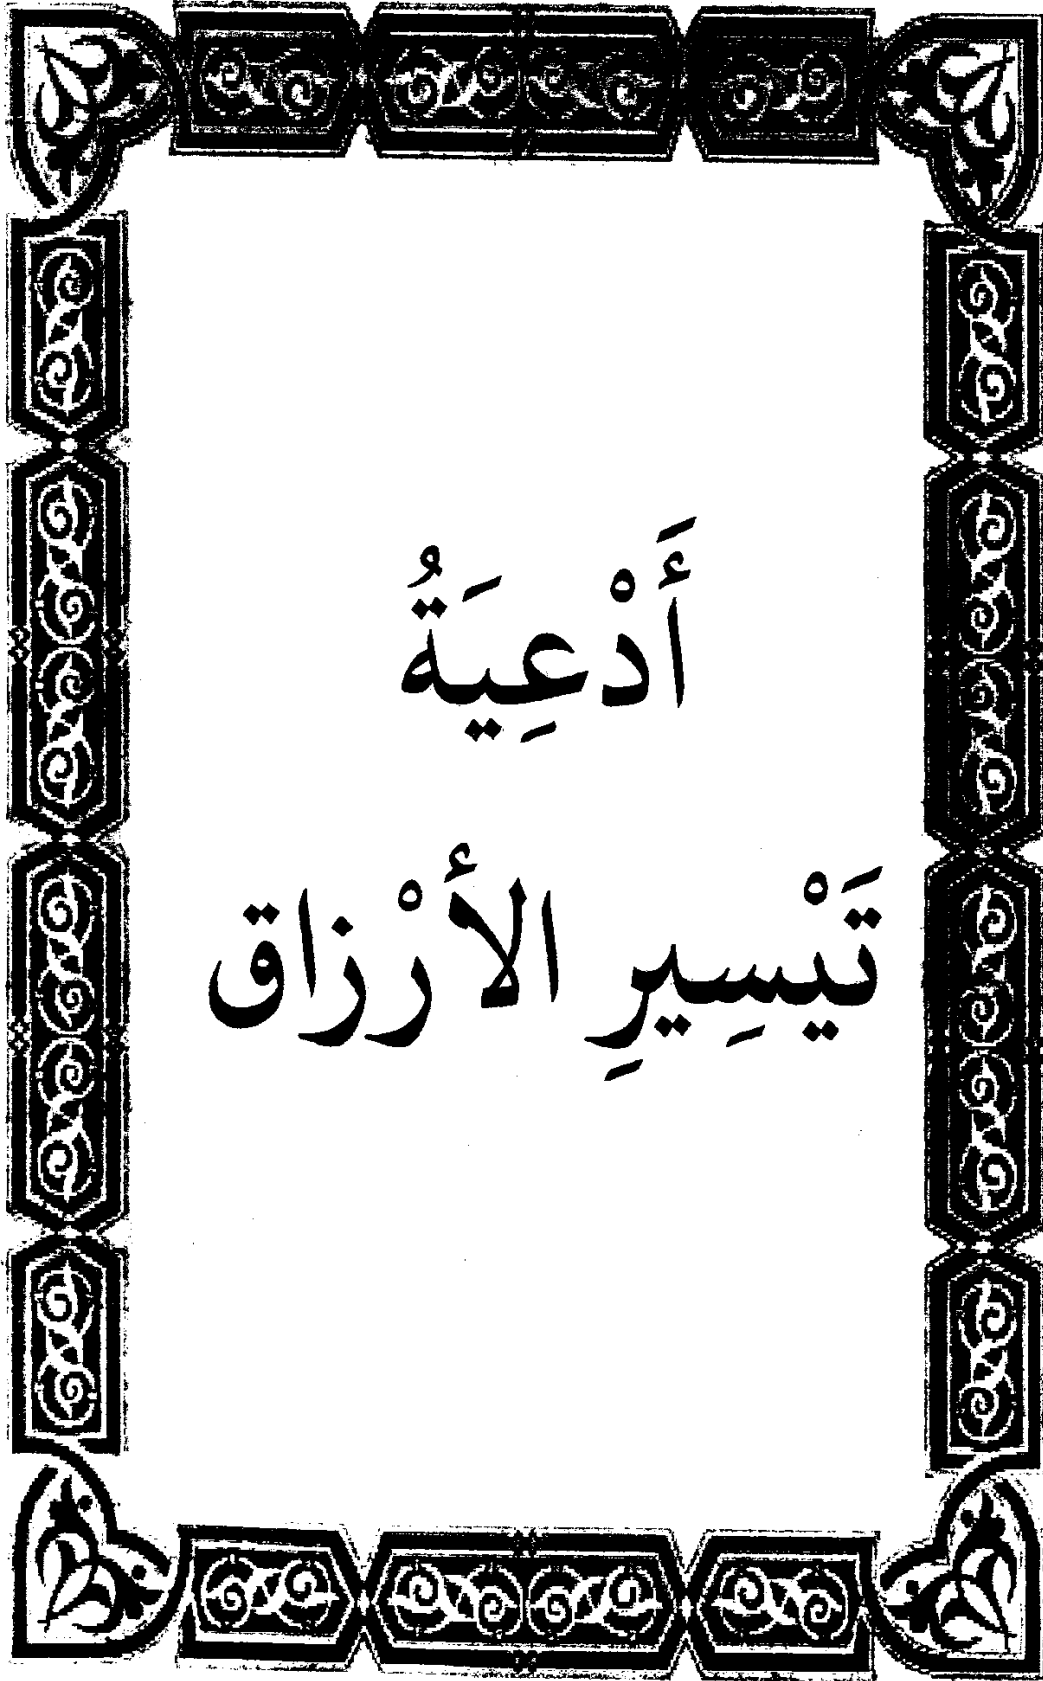 أَدْعِيَةُ
تَيْسِيرِ الأَرْزاق